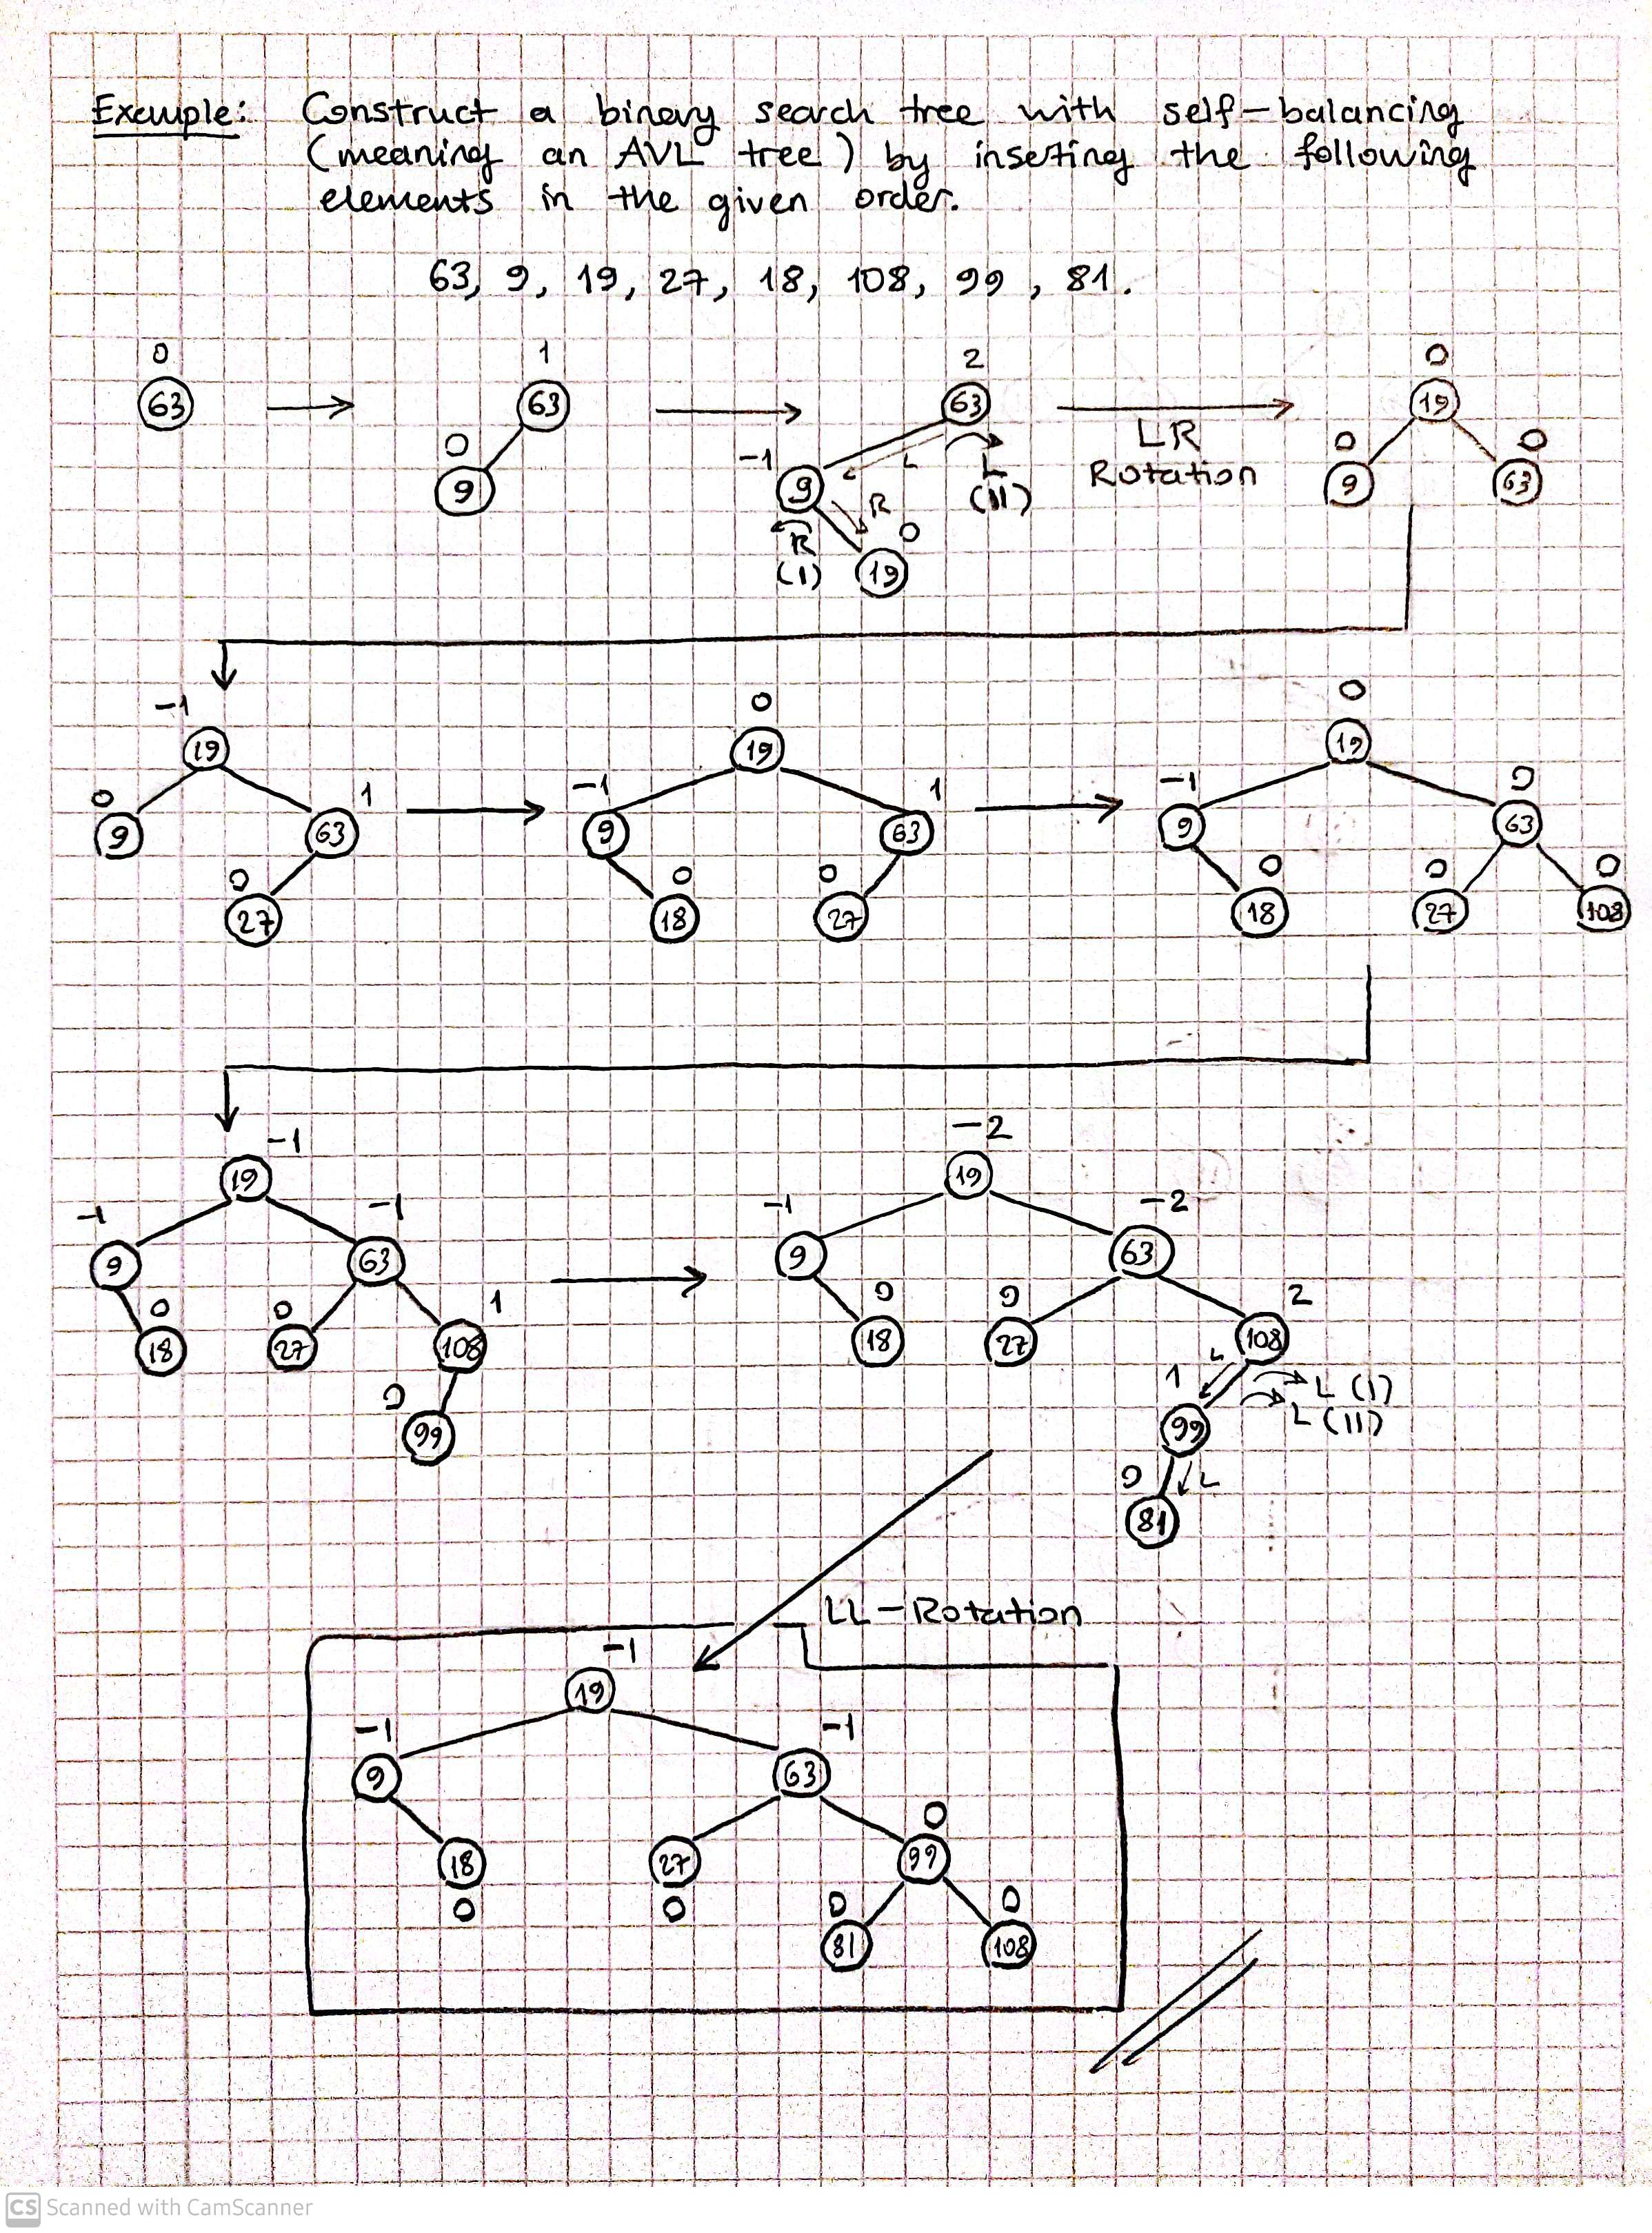 Example: Construct a binary search tree with self-balancing
(meaning an AVL tree) by inserting the following
elements in the given order.
63, 9, 19, 27, 18, 108, 99, 81.
0
63
1
63
0
9
2
63
-1
9
L
L
(II)
R
R
(I)
0
19
LR
Rotation
0
19
0
9
0
63
-1
19
0
9
1
63
0
27
0
19
-1
9
1
63
0
18
0
27
0
19
-1
9
0
63
0
18
0
27
0
108
-1
19
-1
9
-1
63
0
18
0
27
1
108
0
99
-2
19
-1
9
-2
63
0
18
0
27
2
108
L
L (I)
L (II)
1
99
L
0
81
LL-Rotation
-1
19
-1
9
-1
63
18
0
27
0
0
99
0
81
0
108
CS Scanned with CamScanner